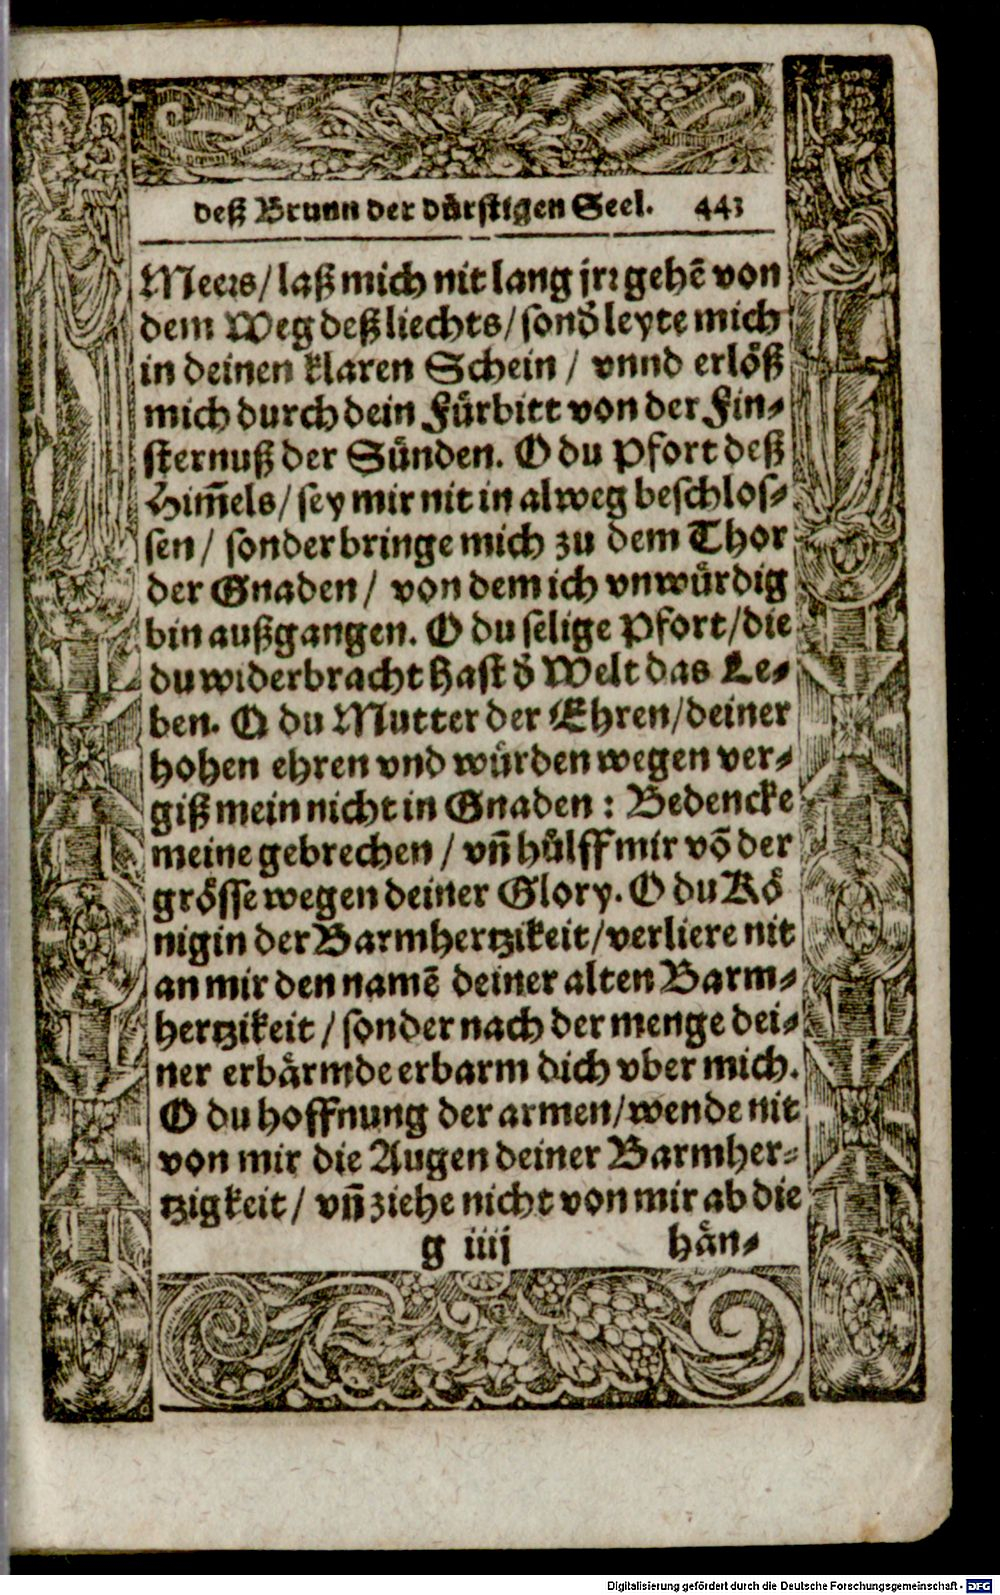 deß Brunn der dürstigen Seel. 443
Meers/laß mich nit lang jrꝛ gehē von
dem Weg deß liechts/sonď leyte mich
in deinen klaren Schein / vnnd erlöß
mich durch dein Fürbitt von der Fin⸗
sternuß der Sünden. O du Pfort deß
Him̄els/sey mir nit in alweg beschlos⸗
sen/ sonder bringe mich zu dem Thor
der Gnaden/ von dem ich vnwürdig
bin außgangen. O du selige Pfort/die
du widerbracht hast ď Welt das Le⸗
ben. O du Mutter der Ehren/deiner
hohen ehren vnd würden wegen ver⸗
giß mein nicht in Gnaden : Bedencke
meine gebrechen / vn̄ hülff mir vō der
grösse wegen deiner Glory. O du Kö
nigin der Barmhertzikeit/verliere nit
an mir den namē deiner alten Barm⸗
hertzikeit / sonder nach der menge dei⸗
ner erbärmde erbarm dich vber mich.
O du hoffnung der armen/wende nit
von mir die Augen deiner Barmher⸗
tzigkeit/ vn̄ ziehe nicht von mir ab die
g iiij hän⸗
Digitalisierung gefördert durch die Deutsche Forschungsgemeinschaft - DFG